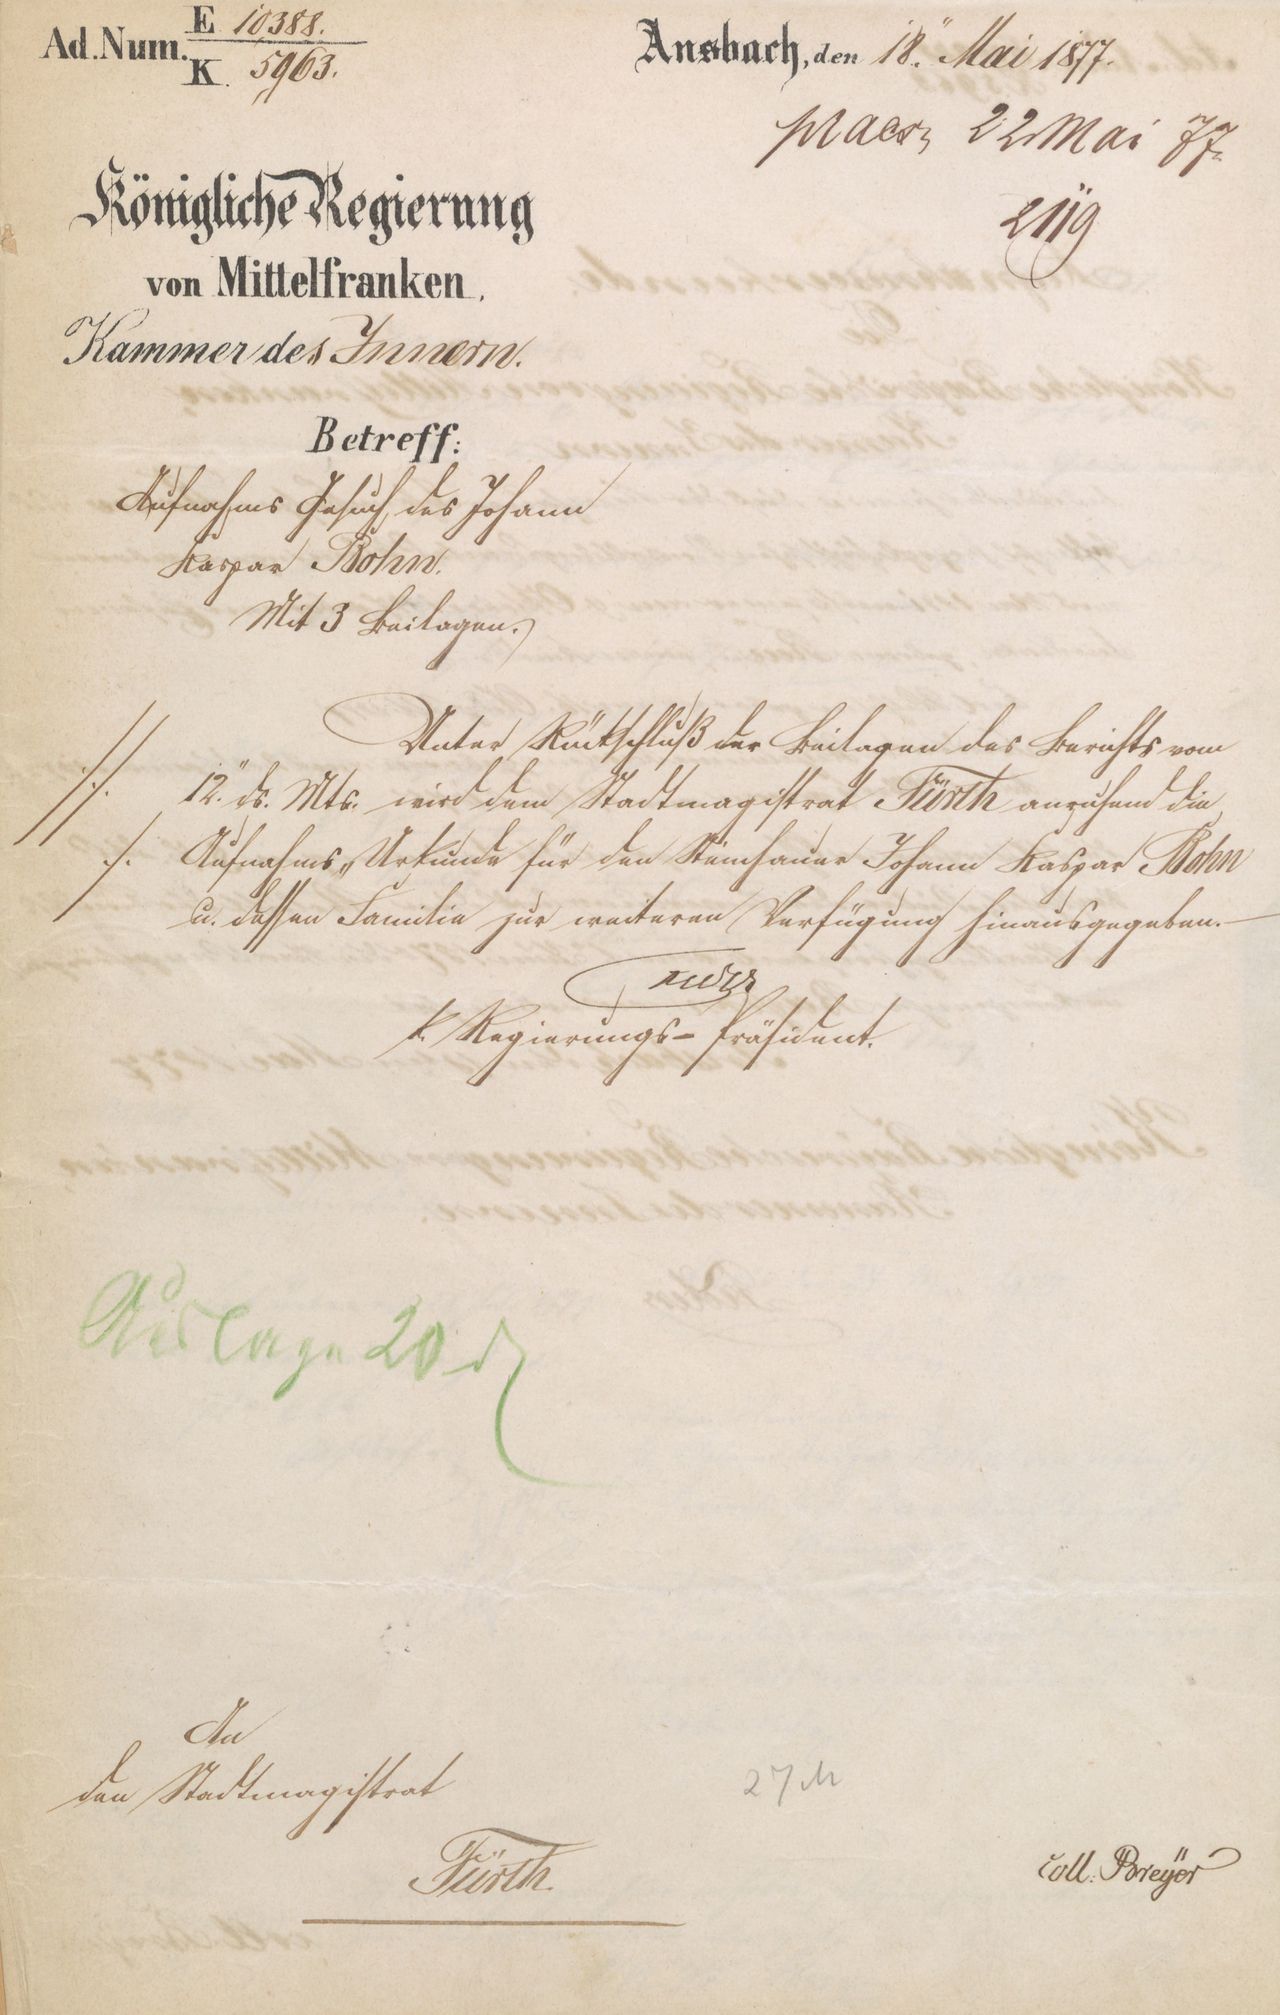 Ad. Num. E 10388.
K. 5963.
Ansbach, den 18." Mai 1877.
praes. 22 Mai 77.
2119
Königliche Regierung
von Mittelfranken,
Kammer des Innern.
Betreff:
Aufnahms Gesuch des Johann
Kaspar Bohn.
Mit 3 Beilagen.
Unter Rückschluß der Beilagen des Berichts vom
12." ds. Mts. wird dem Stadtmagistrat Fürth anruhend die
Aufnahms-Urkunde für den Steinhauer Johann Kaspar Bohn
u. dessen Familie zur weiteren Verfügung hinausgegeben.
k. Regierungs-Präsident.
Auslage 20 d
An
den Stadtmagistrat
Fürth.
27 M
coll. Breyer